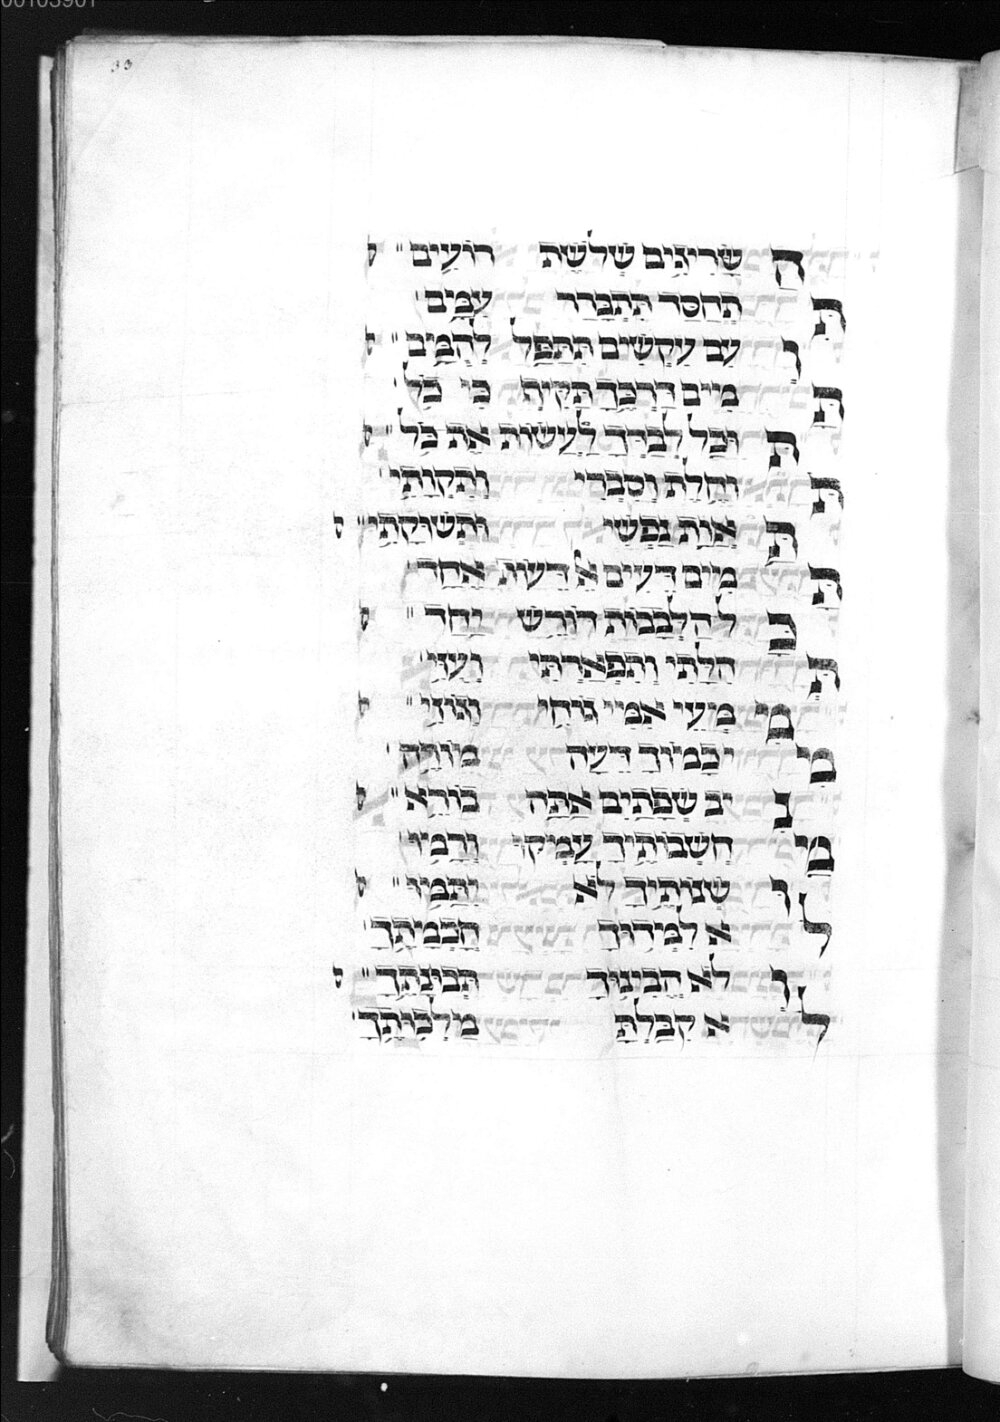 00103901
33
ה שָׂרִיגִים שְׁלֹשֶׁת רוֹעִים״
תּ תְחַסֵּד תִּתְבָּרֵר עַמִּים
ו עִם עִקְשִׁים תִּתַּפָּל לְהָמִים״
תּ מִיִּם דַּרְכְּךָ תָּקִית כִּי כֹל
ת וּכָל לְבָרֵךְ לַעֲשׂוֹת אֶת כֹּל״
תּ וֹחַלְתִּ וְסִבְרִי וְתִקְוָתִי
תּ אֲוַת נַפְשִׁי וּתְשׁוּקָתִי״
תּ מִים דֵּעִים אֵל דֵּעוֹת אֶחָד
כּ ל הַלְּבָבוֹת דּוֹרֵשׁ יַחַד״
תּ הִלָּתִי וְתִפְאַרְתִּי וְעֻזִּי
מִ מְּעֵי אִמִּי גּוֹחִי וְגוֹזִי״
מִי כָּמוֹךָ דֵּעָה מוֹרֶה
נ יב שְׂפָתַיִם אַתָּה בּוֹרֵא״
מ חְשְׁבוֹתֶיךָ עָמְקוּ וְרָמוּ
וּ שְׁנוֹתֶיךָ לֹא יִתַּמּוּ״
ל א לִמְּדוּךָ חָכְמָתֶךָ
ו לֹא הֱבִינוּךָ תְּבוּנָתֶךָ״
ל א קִבַּלְתָּ מַלְכוּתֶךָ